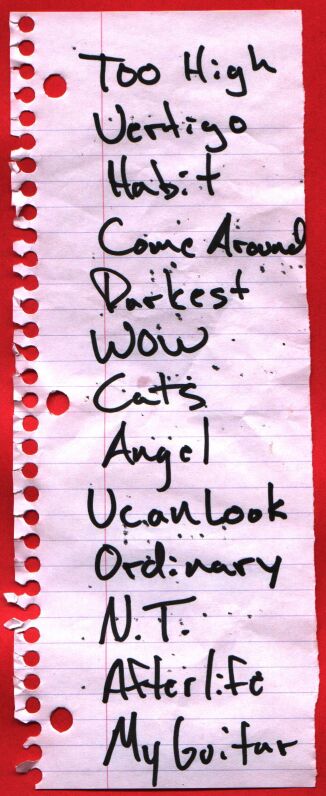 Too High
Vertigo
Habit
Come Around
Darkest
WOW
Cats
Angel
UcanLook
Ordinary
N.T.
Afterlife
My Guitar